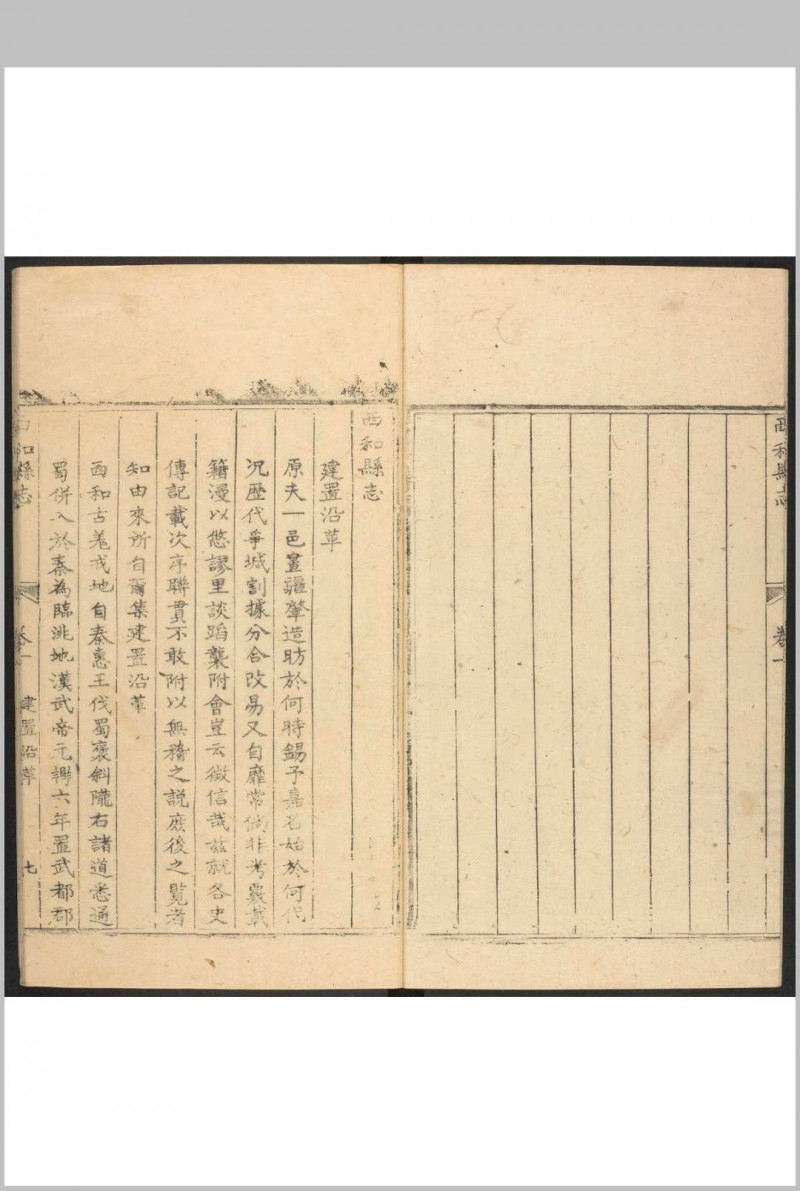 西和縣志
卷一
西和縣志
建置沿革
原夫一邑畫疆肇造昉於何時錫予嘉名始於何代
況歷代爭城割據分合改易又自靡常倘非考覈載
籍漫以悠謬里談蹈襲附會豈云徵信哉茲就各史
傳記載次序聯貫不敢附以無稽之説庶後之覽者
知由來所自爾集建置沿革
西和古羗戎地自秦惠王伐蜀褒斜隴右諸道悉通
蜀併入於秦為臨洮地漢武帝元鼎六年置武都郡
西和縣志
卷一
建置沿革
七